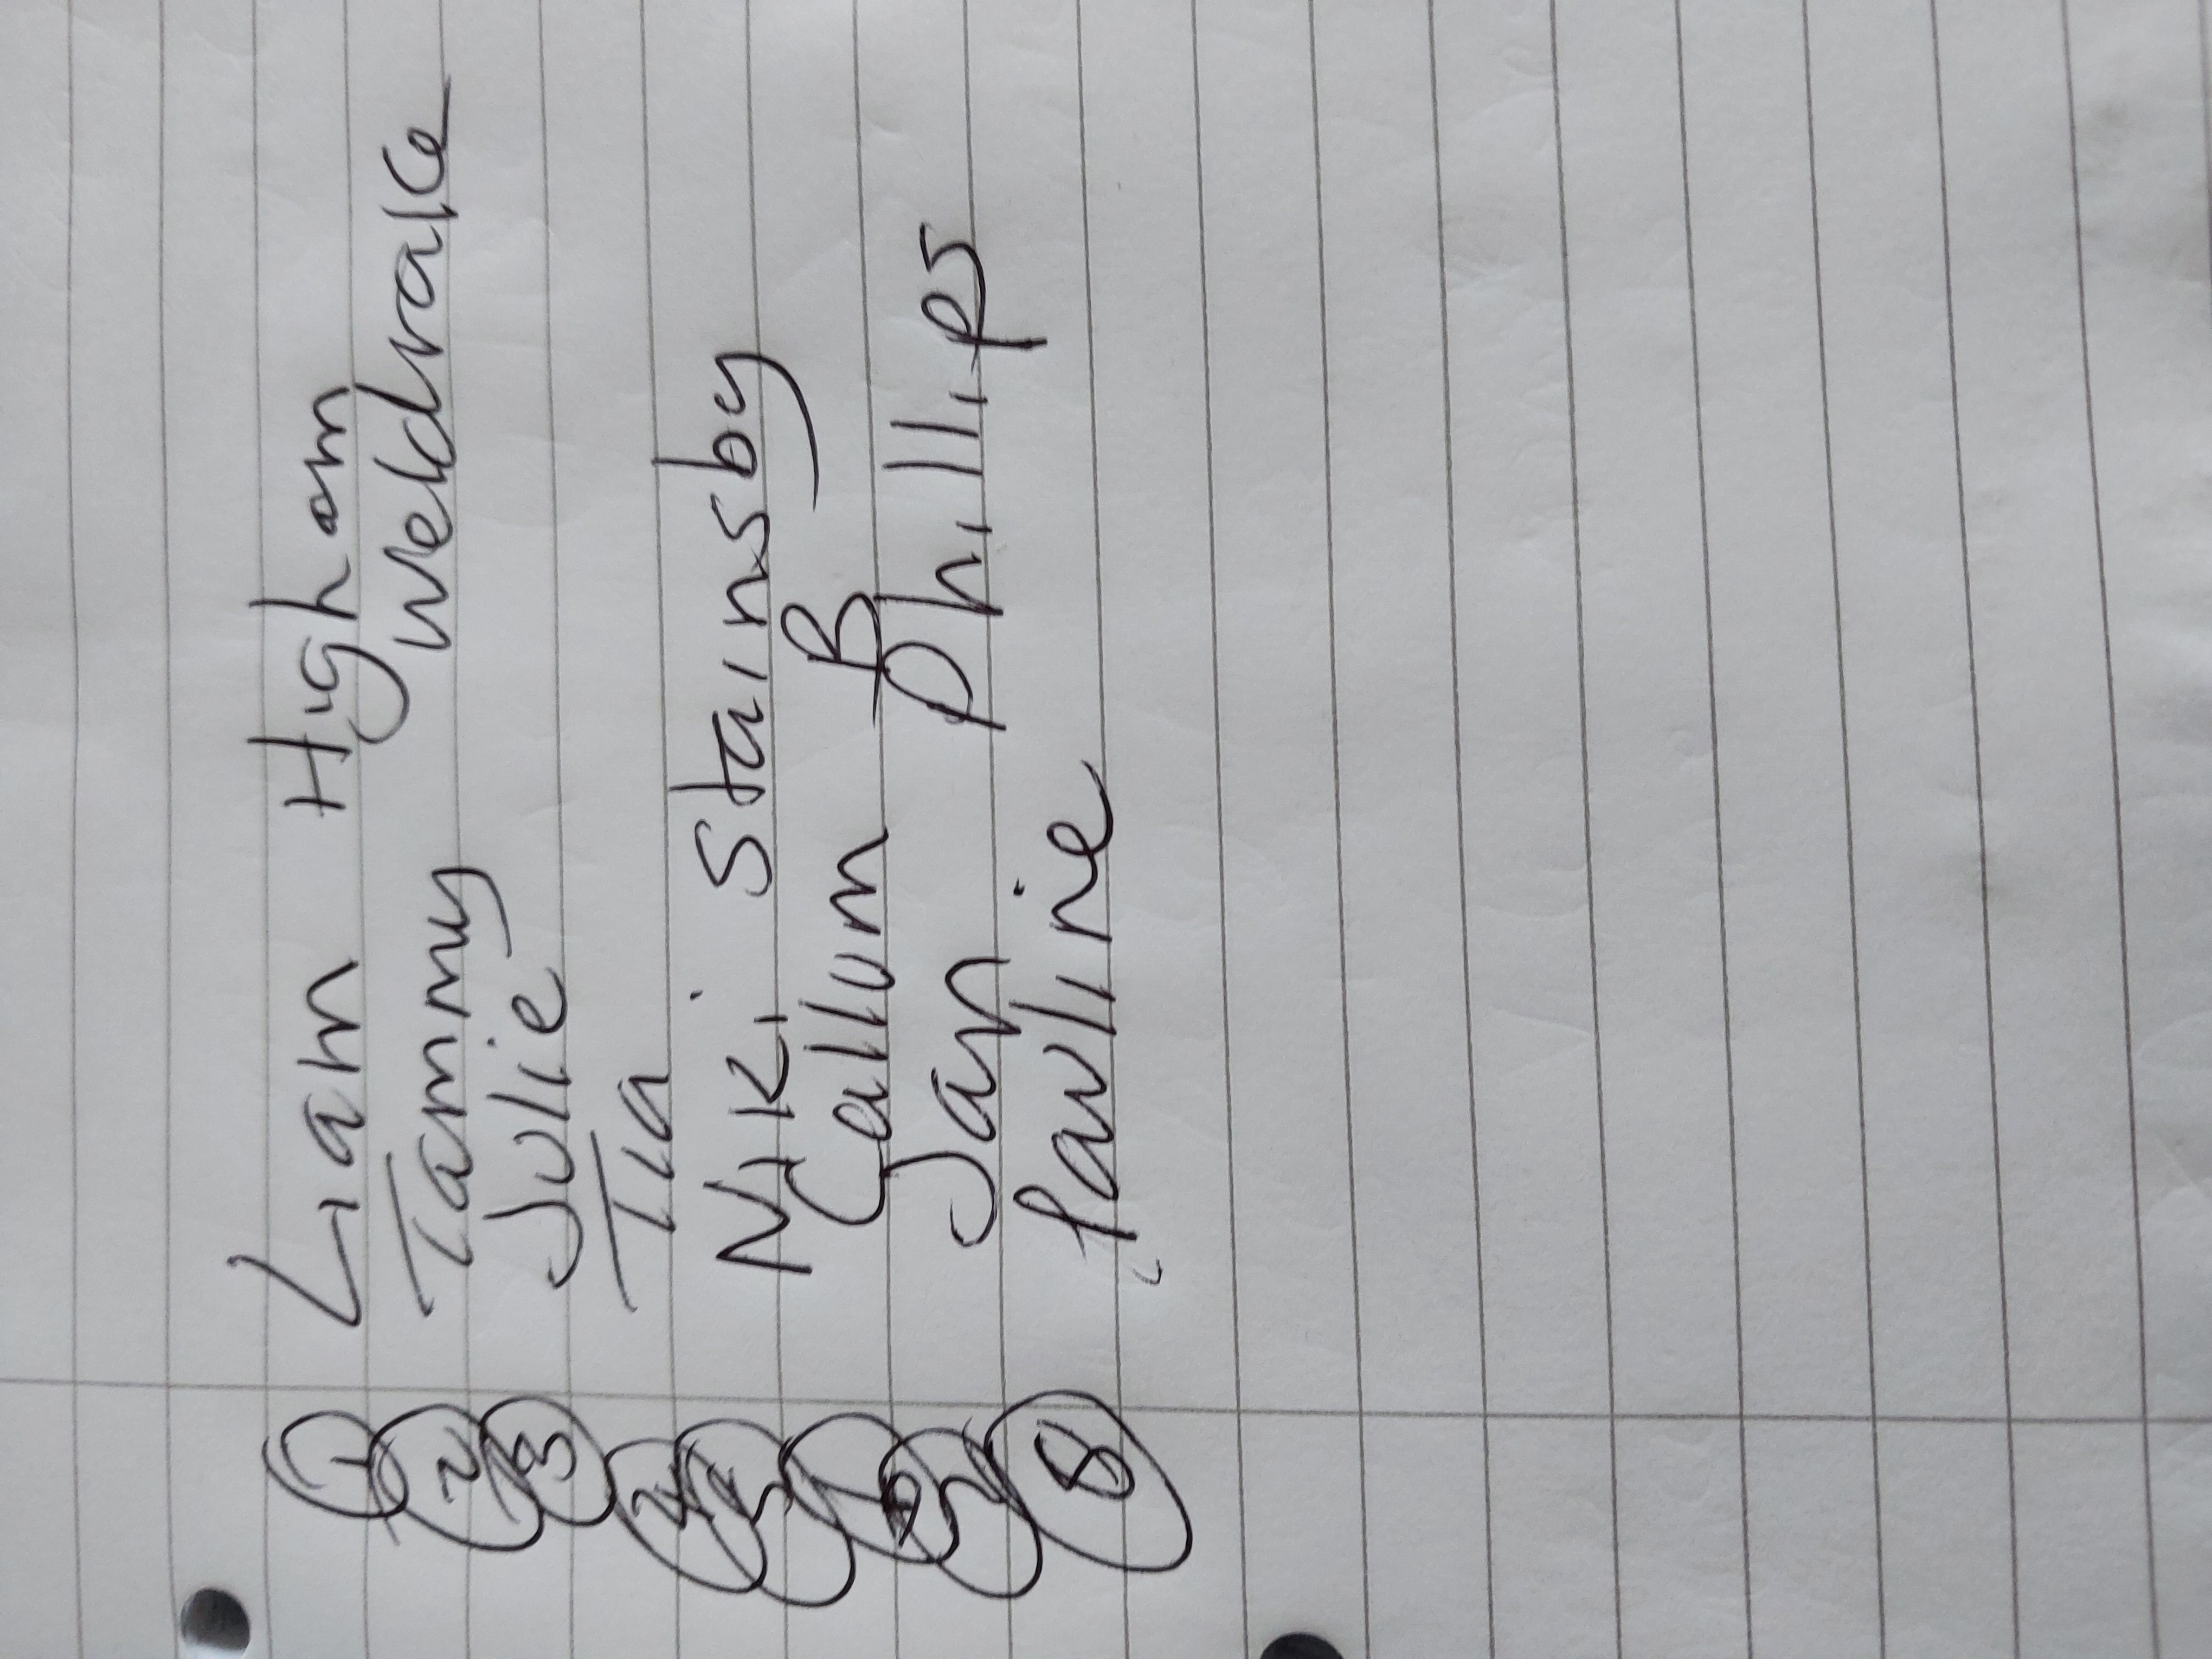 1 Liam Higham
2 Tammy Weldrake
3 Julie
4 Tia
5 Niki Stainsby
6 Callum B
7 Jan Phillips
8 Pauline